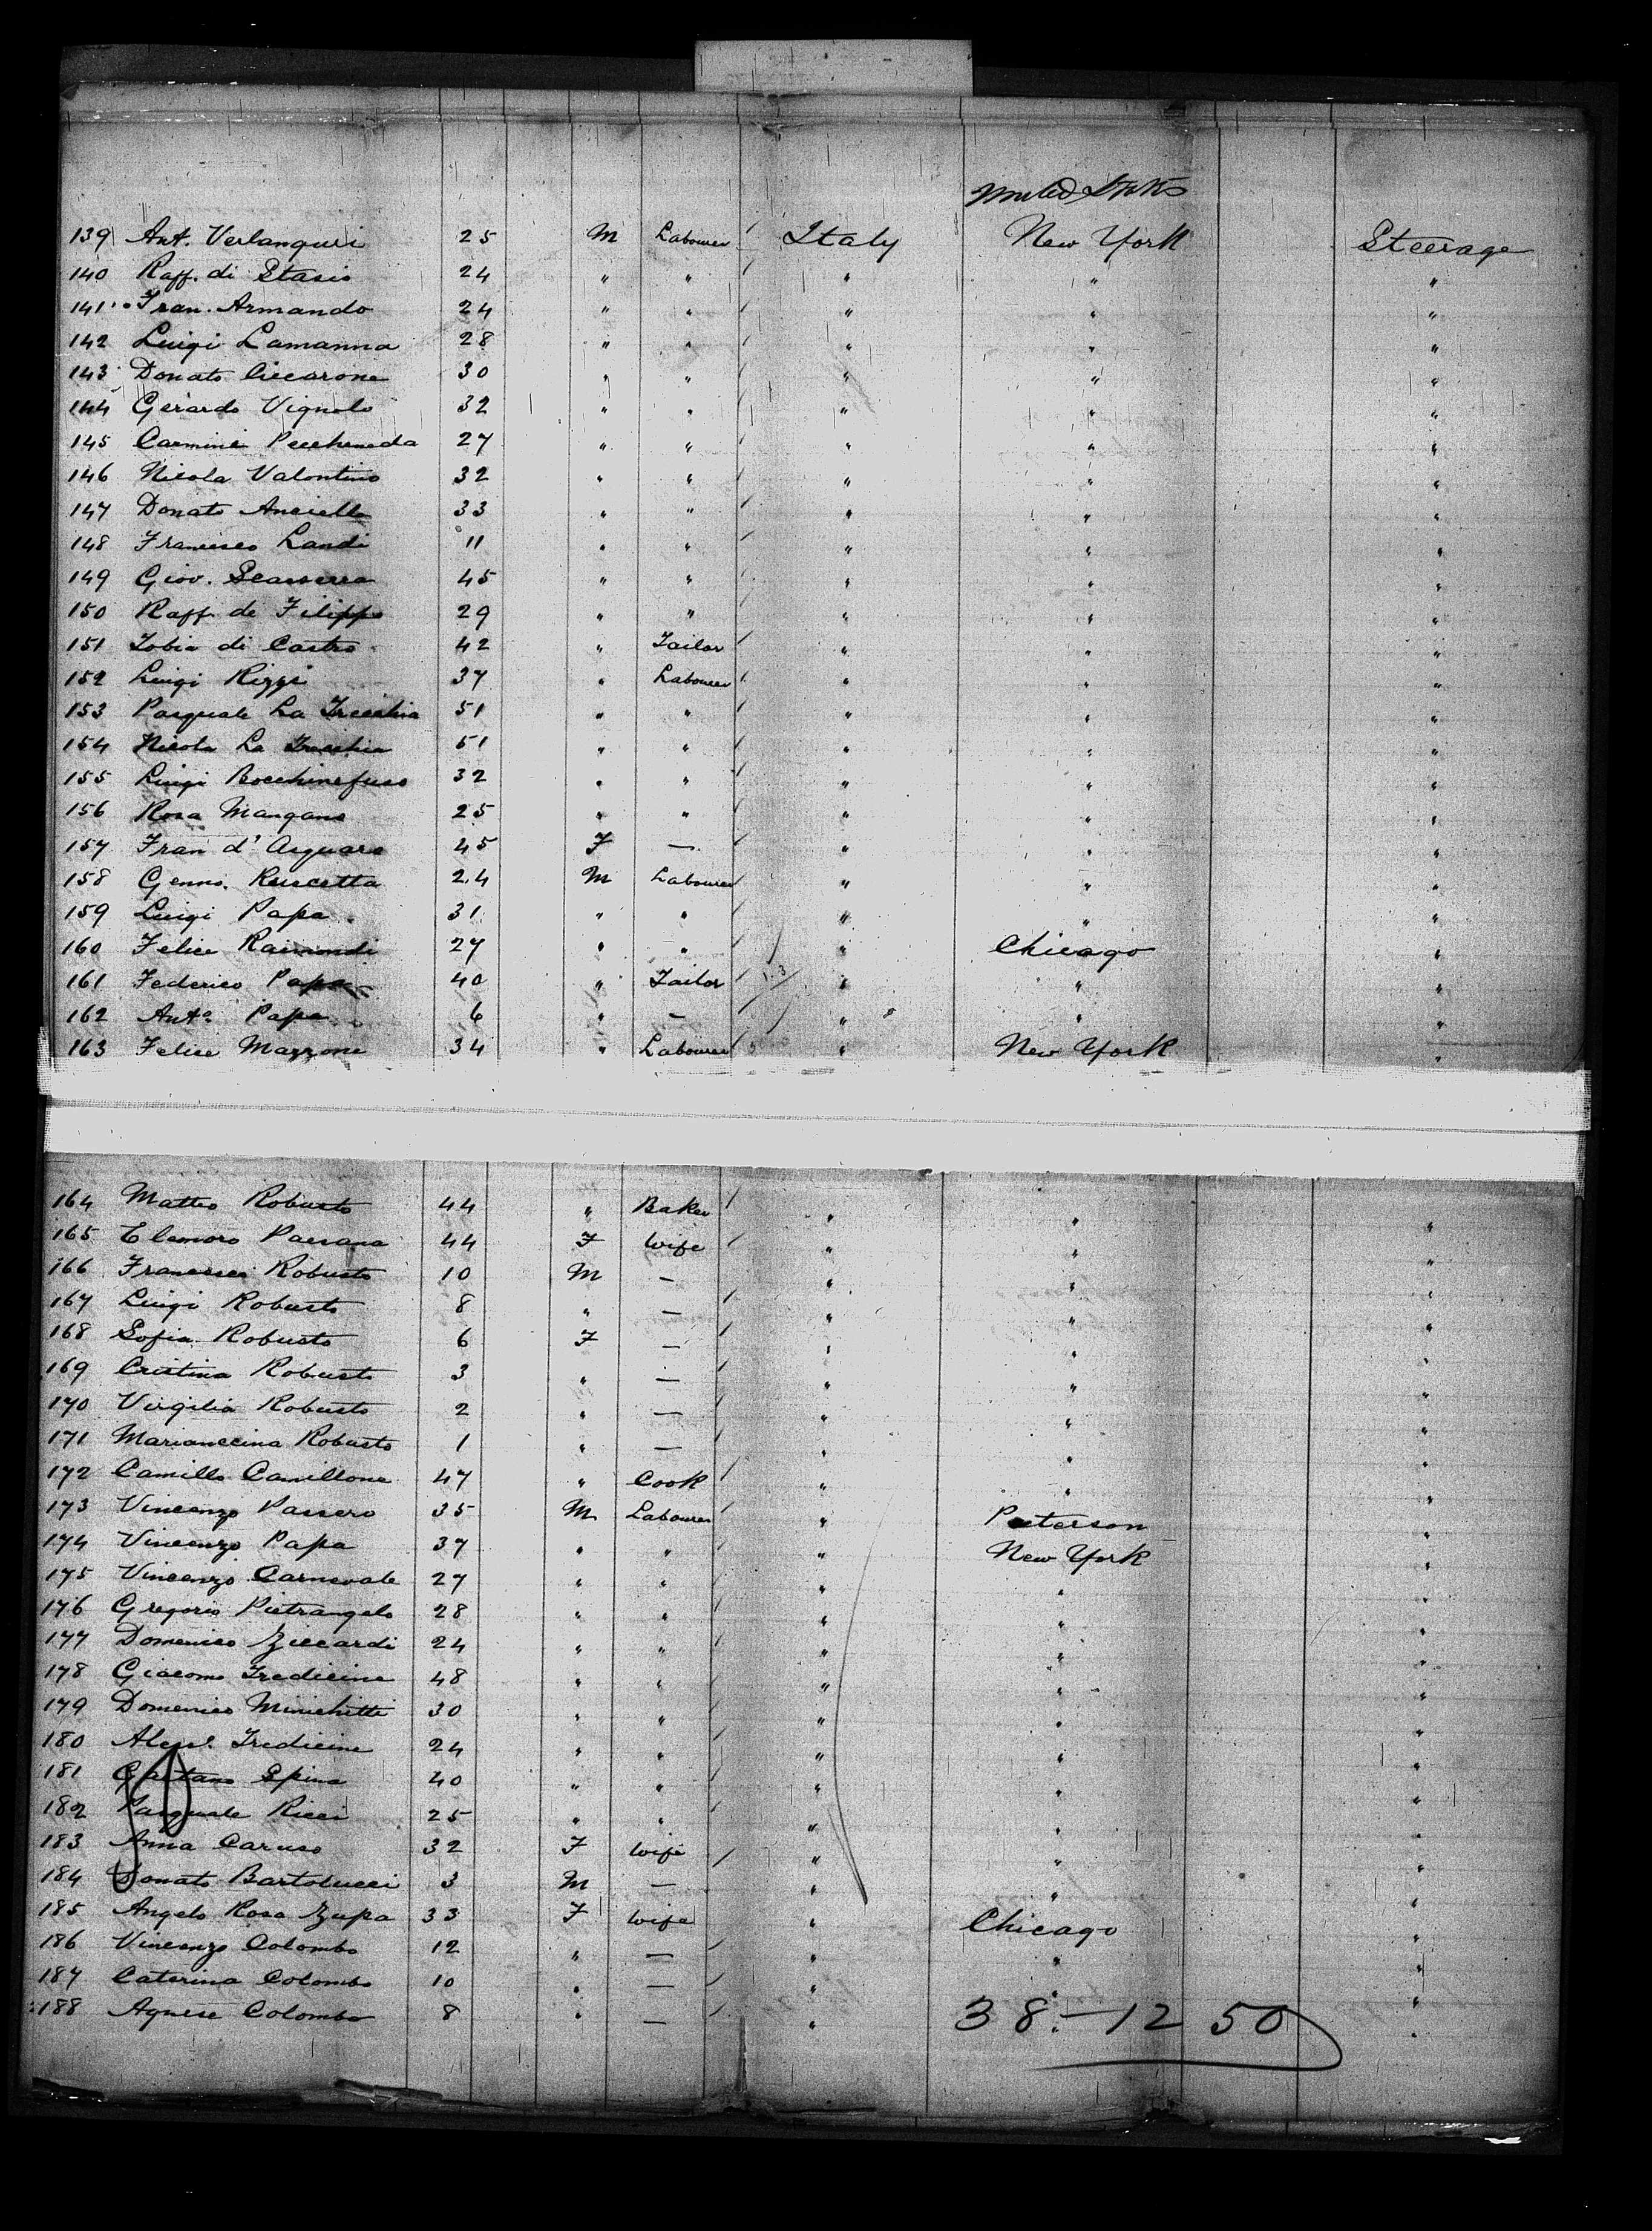 United States
139 Ant. Verlangieri 25 M Labourer Italy New York Steerage
140 Raff. di Stasio 24 " " " " "
141 Fran. Armando 24 " " " " "
142 Luigi Lamanna 28 " " " " "
143 Donato Ciccarone 30 " " " " "
144 Gerardo Vignolo 32 " " " " "
145 Carmine Peccheneda 27 " " " " "
146 Nicola Valontino 32 " " " " "
147 Donato Anciello 33 " " " " "
148 Francesco Landi 11 " " " " "
149 Giov. 45 " " " " "
150 Raff. de Filippo 29 " " " " "
151 Tobia di Castro 42 " Tailor " " "
152 Luigi Rizzi 37 " Labourer " " "
153 Pasquale La 51 " " " " "
154 Nicola La 51 " " " " "
155 Luigi Bocchinefuso 32 " " " " "
156 Rosa Mangano 25 " " " " "
157 Fran d' Acquaro 45 F — " " "
158 Genno. Ruscetta 24 M Labourer " " "
159 Luigi Papa 31 " " " " "
160 Felice Raimondi 27 " " " Chicago "
161 Federico Papa 40 " Tailor " " "
162 Anto. Papa 6 " — " " "
163 Felice Mazzone 34 " Labourer " New York "
164 Matteo Robusto 44 " Baker " " "
165 Elemoro Paesana 44 F Wife " " "
166 Francesco Robusto 10 M — " " "
167 Luigi Robusto 8 " — " " "
168 Sofia Robusto 6 F — " " "
169 Cristina Robusto 3 " — " " "
170 Virgilia Robusto 2 " — " " "
171 Mariannina Robusto 1 " — " " "
172 Camillo Camillone 47 " Cook " " "
173 Vincenzo Passero 35 M Labourer " Peterson "
174 Vincenzo Papa 37 " " " New York "
175 Vincenzo Carnevale 27 " " " " "
176 Gregorio Pietrangelo 28 " " " " "
177 Domenico Ziccardi 24 " " " " "
178 Giacomo Tredicine 48 " " " " "
179 Domenico Minichitti 30 " " " " "
180 Aless. Tredicine 24 " " " " "
181 Gaetano Spina 40 " " " " "
182 Pasquale Ricci 25 " " " " "
183 Anna Caruso 32 F Wife " " "
184 Donato Bartolucci 3 M — " " "
185 Angelo Rosa Zupa 33 F Wife " Chicago "
186 Vincenzo Colombo 12 " — " " "
187 Caterina Colombo 10 " — " " "
188 Agnese Colombo 8 " — " "
38.— 12 50